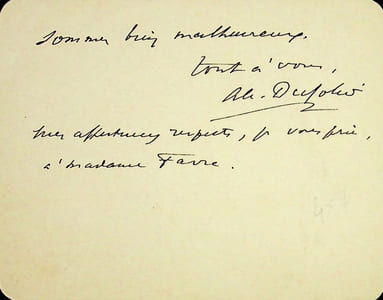 sommes bien malheureux.
tout à vous,
Alc. Dusolier
Mes affectueux respects, je vous prie,
à madame Favre.